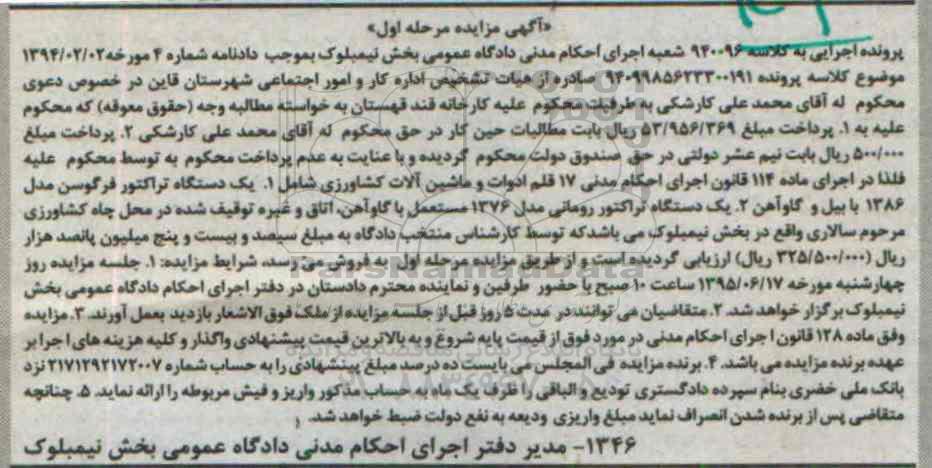 «آگهی مزایده مرحله اول»
پرونده اجرایی به کلاسه ۹۴۰۰۹۶ شعبه اجرای احکام مدنی دادگاه عمومی بخش نیمبلوک بموجب دادنامه شماره ۴ مورخه ۱۳۹۴/۰۲/۰۲
موضوع کلاسه پرونده ۹۴۰۹۹۸۵۶۲۳۳۰۰۱۹۱ صادره از هیات تشخیص اداره کار و امور اجتماعی شهرستان قاین در خصوص دعوی
محکوم له آقای محمد علی کارشکی به طرفیت محکوم علیه کارخانه قند قهستان به خواسته مطالبه وجه (حقوق معوقه) که محکوم
علیه به ۱. پرداخت مبلغ ۵۳/۹۵۶/۳۶۹ ریال بابت مطالبات حین کار در حق محکوم له آقای محمد علی کارشکی ۲. پرداخت مبلغ
۵۰۰/۰۰۰ ریال بابت نیم عشر دولتی در حق صندوق دولت محکوم گردیده و با عنایت به عدم پرداخت محکوم به توسط محکوم علیه
فلذا در اجرای ماده ۱۱۴ قانون اجرای احکام مدنی ۱۷ قلم ادوات و ماشین آلات کشاورزی شامل ۱. یک دستگاه تراکتور فرگوسن مدل
۱۳۸۶ با بیل و گاوآهن ۲. یک دستگاه تراکتور رومانی مدل ۱۳۷۶ مستعمل با گاوآهن، اتاق و غیره توقیف شده در محل چاه کشاورزی
مرحوم سالاری واقع در بخش نیمبلوک می باشد که توسط کارشناس منتخب دادگاه به مبلغ سیصد و بیست و پنج میلیون پانصد هزار
ریال (۳۲۵/۵۰۰/۰۰۰ ریال) ارزیابی گردیده است و از طریق مزایده مرحله اول به فروش می رسد، شرایط مزایده: ۱. جلسه مزایده روز
چهارشنبه مورخه ۱۳۹۵/۰۶/۱۷ ساعت ۱۰ صبح با حضور طرفین و نماینده محترم دادستان در دفتر اجرای احکام دادگاه عمومی بخش
نیمبلوک برگزار خواهد شد. ۲. متقاضیان می توانند در مدت ۵ روز قبل از جلسه مزایده از ملک فوق الاشعار بازدید بعمل آورند. ۳. مزایده
وفق ماده ۱۲۸ قانون اجرای احکام مدنی در مورد فوق از قیمت پایه شروع و به بالاترین قیمت پیشنهادی واگذار و کلیه هزینه های اجرا بر
عهده برنده مزایده می باشد. ۴. برنده مزایده فی المجلس می بایست ده درصد مبلغ پیشنهادی را به حساب شماره ۲۱۷۱۲۹۲۱۷۲۰۰۷ نزد
بانک ملی خضری بنام سپرده دادگستری تودیع و الباقی را ظرف یک ماه به حساب مذکور واریز و فیش مربوطه را ارائه نماید. ۵. چنانچه
متقاضی پس از برنده شدن انصراف نماید مبلغ واریزی ودیعه به نفع دولت ضبط خواهد شد.
۱۳۴۶- مدیر دفتر اجرای احکام مدنی دادگاه عمومی بخش نیمبلوک
ParsNamadData